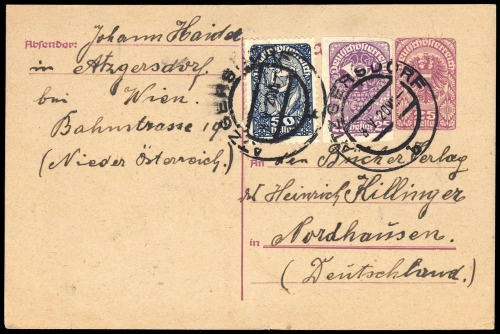 Absender: Johann Haidl
in Atzgersdorf.
bei Wien.
Bahnstrasse
(Nieder Österreich.)
Deutschösterreich
50
Heller
Deutschösterreich
25
Heller
25
ATZGERSDORF
ATZGERSDORF
An den Bücher Verlag
Heinrich Killinger
in Nordhausen.
(Deutschland.)